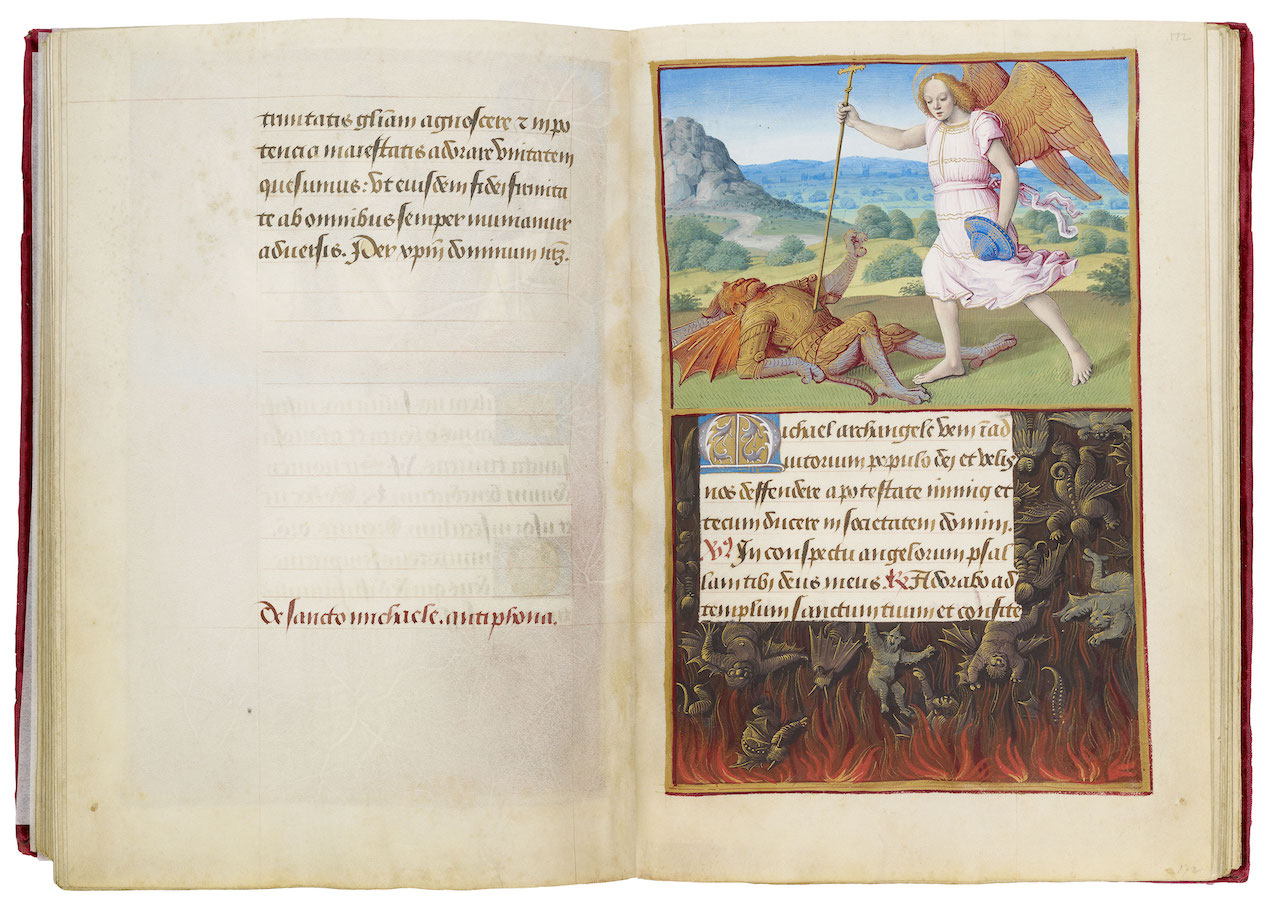 trinitatis gl̃iam agnoscere ⁊ in po
tencia maiestatis adorare vnitatem
quesumus: vt eiusdem fidei firmita
te ab omnibus semper muniamur
aduersis. Per xp̃m dominum
De sancto michaele. antiphona.
Michael archangele veni ĩ ad
iutorium populo dei et velis
nos deffendere a potestate et
tecum ducere in societatem domini.
V̷ In conspectu angelorum psal
lam tibi deus meus. R̷ Adorabo ad
templum sanctum tuum et confite